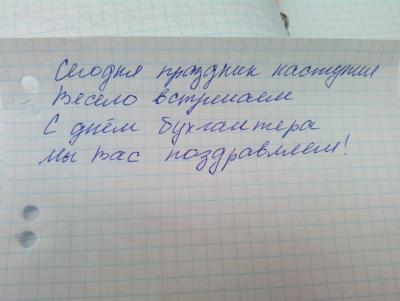 Сегодня праздник наступил
Весело встречаем
С днём бухгалтера
Мы Вас поздравляем!